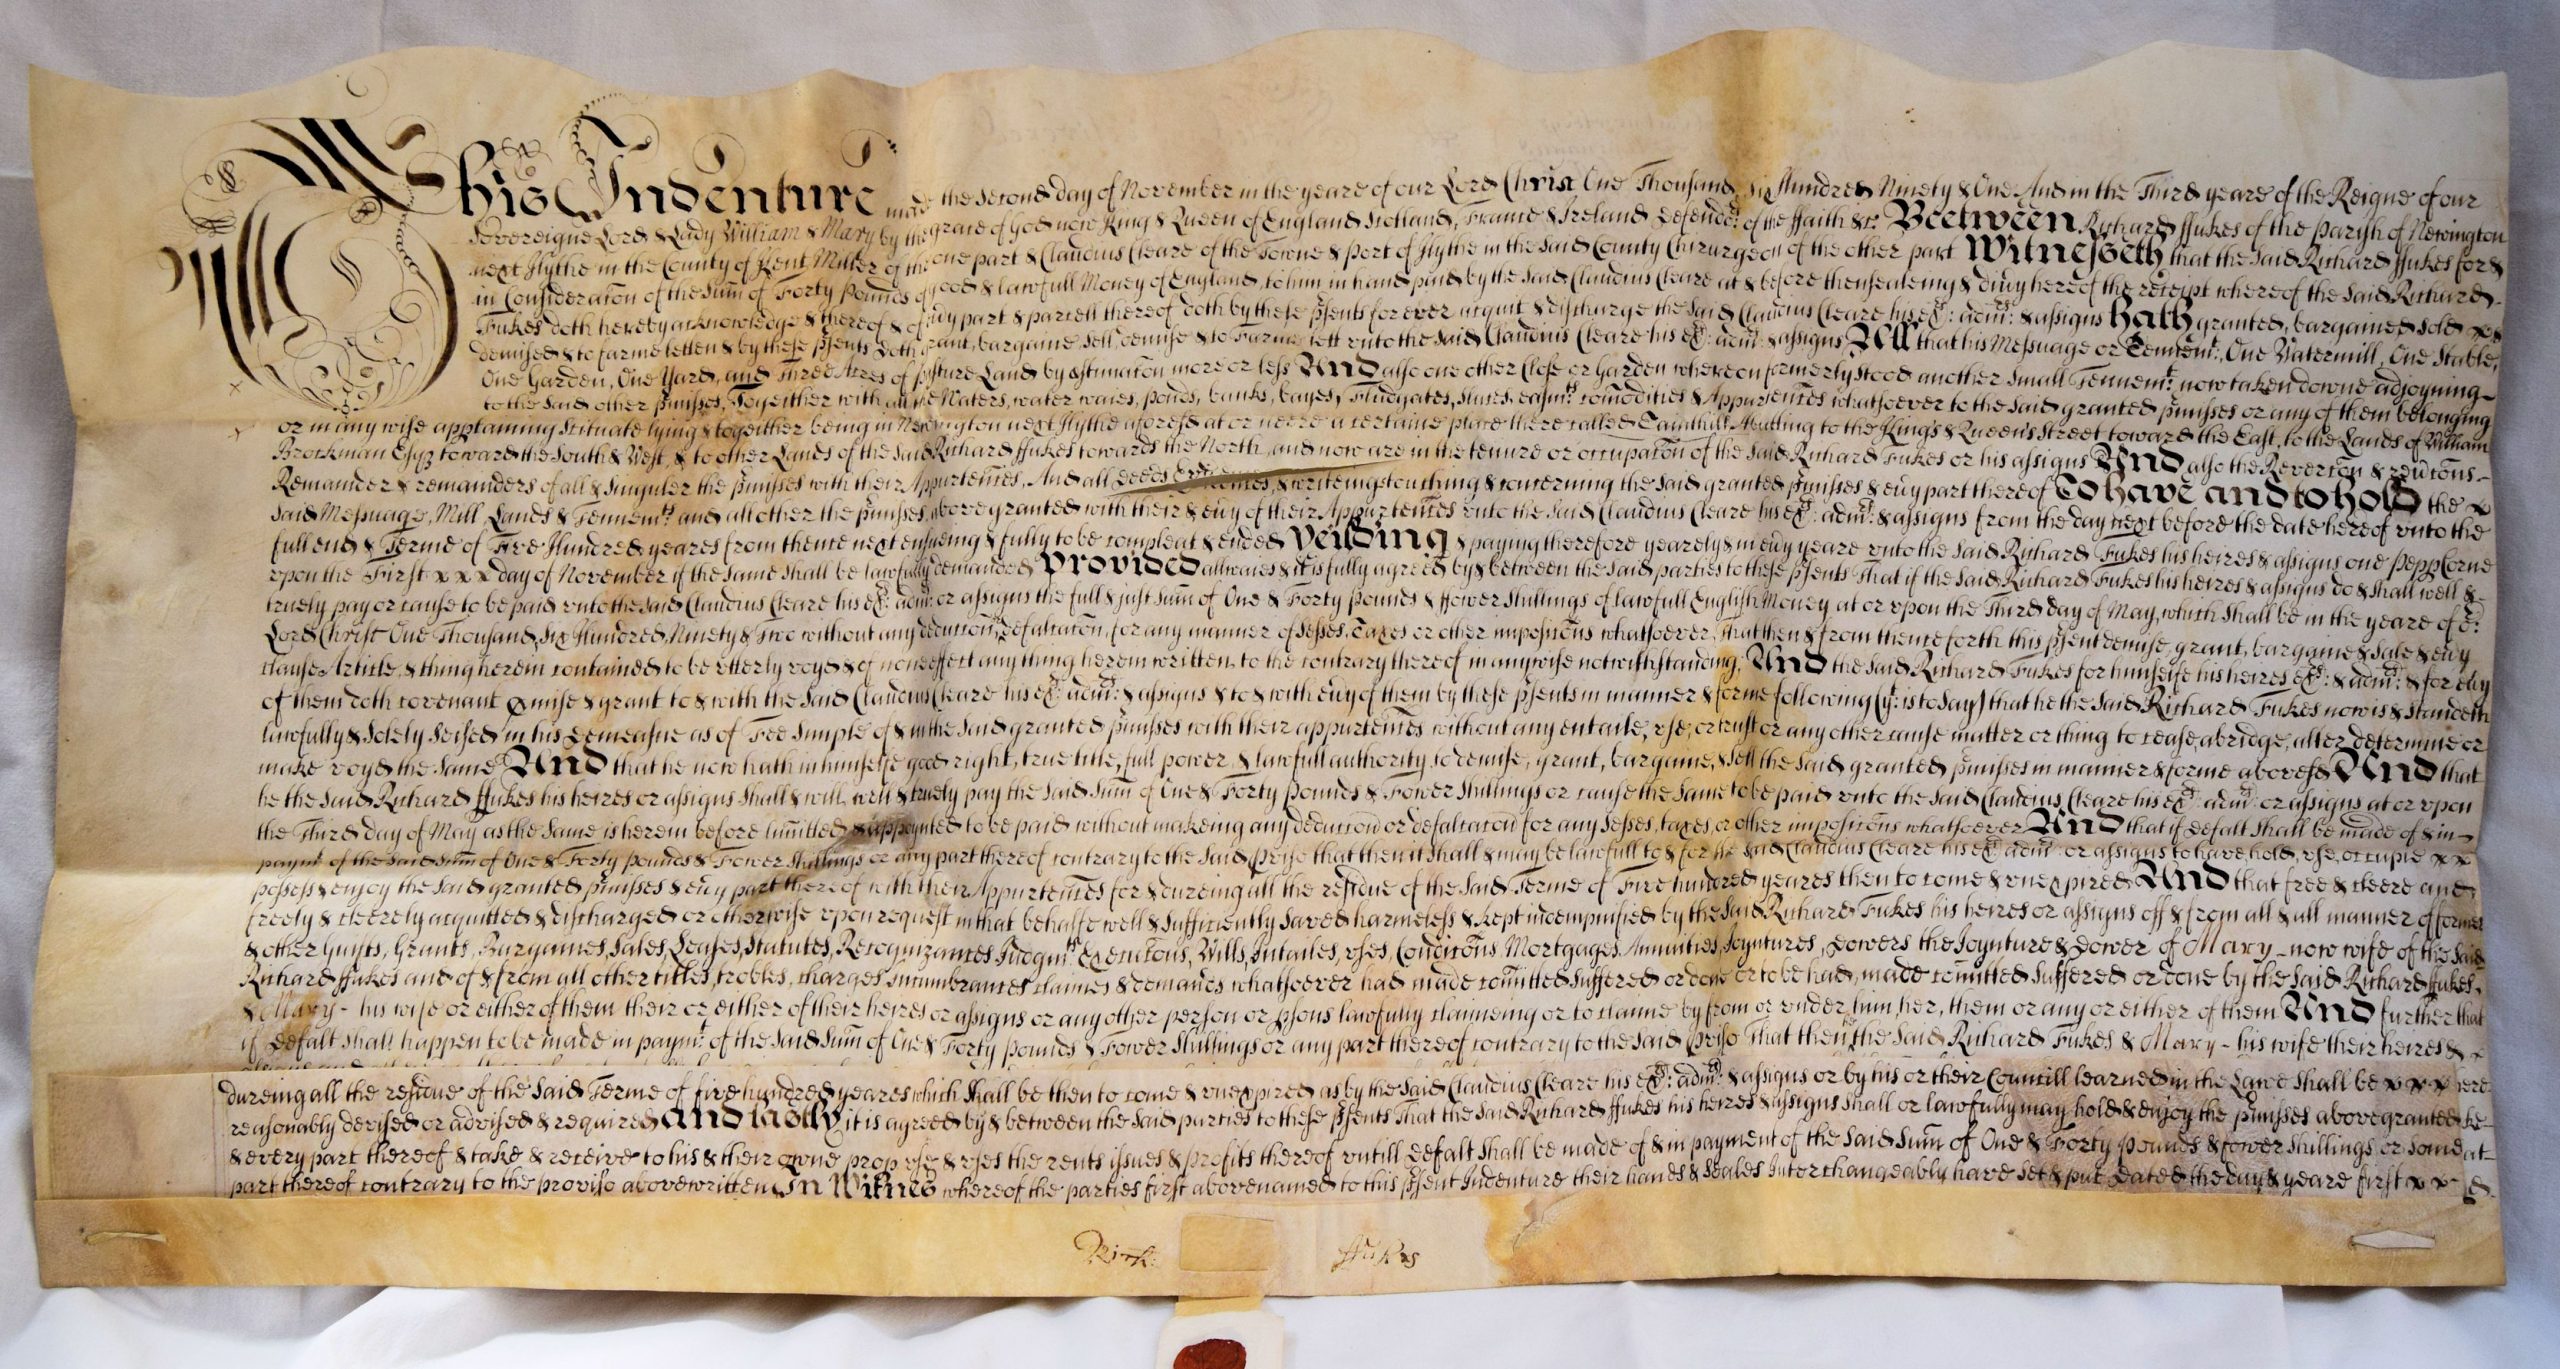 This Indenture made the Second day of November in the yeare of our Lord Christ One Thousand Six Hundred Ninety & One And in the Third yeare of the Reigne of our
Sovereigne Lord & Lady William & Mary by the grace of God now King & Queen of England Scotland, France & Ireland Defendrs of the ffaith &c. Beetween Richard ffukes of the Parish of Newington
next Hythe in the County of Kent Miller of the one part & Claudius Cleare of the Towne & Port of Hythe in the said County Chirurgeon of the other part Witnesseth that the said Richard ffukes for &
in Consideraton of the sum of Forty Pounds of good & lawfull Money of England, to him in hand paid by the said Claudius Cleare at & before thensealeing & divy hereof the receipt whereof the said Richard
Fukes doth hereby acknowledge & thereof & of evy part & parcell thereof doth by these psents for ever acquit & discharge the said Claudius Cleare his exrs: admrs: & assigns hath granted, bargained sold
demised & to farme letten & by these psents doth grant, bargaine sell, demise & to Farme lett unto the said Claudius Cleare his exrs: admrs: & assigns All that his Messuage or Tenemt:, One Watermill, One Stable,
One Garden, One Yard, and Three Acres of pasture Land by estimaton more or less And also one other Close or Garden whereon formerly stood another small Tennemt: now taken downe adjoyning
to the said other pmisses, Togeither with all the Waters, water waies, ponds, banks, bayes, Fludgates, sluces, easmts: comodities & Appurtences whatsoever to the said granted pmisses or any of them belonging
or in any wise apptaining Scituate lying & togeither being in Newington next Hythe aforesd at or neere a certaine place there called Abutting to the King's & Queen's Street toward the East, to the Lands of William
Brockman Esqr toward the South & West, & to other Lands of the said Richard ffukes towards the North, and now are in the tenure or occupaton of the said Richard Fukes or his assigns And also the Reverton & revtons
Remainder & remainders of all & singuler the pmisses with their Appurtences, And all deeds Evidences, & writeings touching & concerning the said granted pmisses & evy part thereof To have and to hold the x
said Messuage, Mill, Lands & Tennemts: and all other the pmisses above granted with their & evy of their Appurtences unto the said Claudius Cleare his exrs: admrs: & assigns from the day next before the date hereof unto the
full end & Terme of Five Hundred yeares from thence next ensueing & fully to be compleat & ended Yeilding & paying therefore yearely & in evy yeare unto the said Richard Fukes his heires & assigns one PeppCorne
upon the First x x x day of November if the same shall be lawfully demanded Provided allwaies & it is fully agreed by & between the said parties to these psents That if the said Richard Fukes his heires & assigns do & shall well &
truely pay or cause to be paid unto the said Claudius Cleare his exrs: admrs: or assigns the full & just sum of One & Forty Pounds & ffower Shillings of lawfull English Money at or upon the Third day of May, which shall be in the yeare of
Lord Christ One Thousand, Six Hundred, Ninety & Two without any deduction or defalcaton, for any manner of Sesses, Taxes or other impositons whatsoever, That then & from thenceforth this psent demise, grant, bargaine & sale & evy
clause Article, & thing herein contained to be utterly voyd & of none effect any thing herein written to the contrary thereof in anywise notwithstanding, And the said Richard Fukes for himselfe his heires exrs: & admrs: & for evy
of them doth covenant pmise & grant to & with the said Claudius Cleare his exrs: admrs: & assigns & to & with evy of them by these psents in manner & forme following (yt: is to say) that he the said Richard Fukes now is & standeth
lawfully & solely seised in his demeasne as of Fee simple of & in the said granted pmisses with their appurtences without any entaile, use, or trust or any other cause matter or thing to cease, abridge, alter determine or
make voyd the same And that he now hath in himselfe good right, true title, full power & lawfull authority to demise, grant, bargaine, & sell the said granted pmisses in manner & forme abovesd And that
he the said Richard ffukes his heires or assigns shall & will well & truely pay the said sum of One & Forty Pounds & Fower Shillings or cause the same to be paid unto the said Claudius Cleare his exrs: admrs: or assigns at or upon
the Third day of May as the same is herein before limitted & appoynted to be paid without makeing any deduction or defalcaton for any Sesses, taxes, or other impositons whatsoever And that if defalt shall be made of & in
paymt: of the said sum of One & Forty Pounds & Fower Shillings or any part thereof contrary to the said Proviso that then it shall & may be lawfull to & for the said Claudius Cleare his exrs: admrs: or assigns to have, hold, use, occupie x x
possess & enjoy the said granted pmisses & evy part thereof with their Appurtences for & dureing all the residue of the said Terme of Five hundred yeares then to come & unexpired And that free & cleere and
freely & cleerely acquitted & discharged or otherwise upon request in that behalfe well & sufficiently saved harmeless & kept indempnified by the said Richard Fukes his heires or assigns off & from all & all manner of former
& other Guyfts, Grants, Bargaines, Sales, Leases, Statutes, Recognizances Judgmts: Executons, Wills, Intailes, uses, Conditons Mortgages, Annuities, Joyntures, Dowers the Joynture & Dower of Mary - now wife of the said
Richard ffukes and of & from all other titles, trobles, charges, incumbrances claimes & demands whatsoever had made comitted suffered or done or to be had, made comitted suffered or done by the said Richard ffukes,
& Mary - his wife or either of them their or either of their heires or assigns or any other person or psons lawfully claimeing or to claime by from or under him, her, them or any or either of them And further that
if defalt shall happen to be made in paymt: of the said sum of One & Forty Pounds & Fower Shillings or any part thereof contrary to the said Proviso That then the said Richard Fukes & Mary - his wife their heires & x
dureing all the residue of the said Terme of five hundred yeares which shall be then to come & unexpired as by the said Claudius Cleare his exrs: admrs: & assigns or by his or their Councill learned in the Lawe shall be x x x
reasonably devised or advised & required And lastly it is agreed by & between the said parties to these psents That the said Richard ffukes his heires & assigns shall or lawfully may hold & enjoy the pmisses above granted
& every part thereof & take & receive to his & their owne prop use & uses the rents issues & profits thereof untill defalt shall be made of & in payment of the said sum of One & Forty Pounds & fower Shillings or some
part thereof contrary to the proviso abovewritten In Witnes whereof the parties first abovenamed to this psent Indenture their hands & seales Interchangeably have set & put Dated the day & yeare first x x
Rich: ffukes